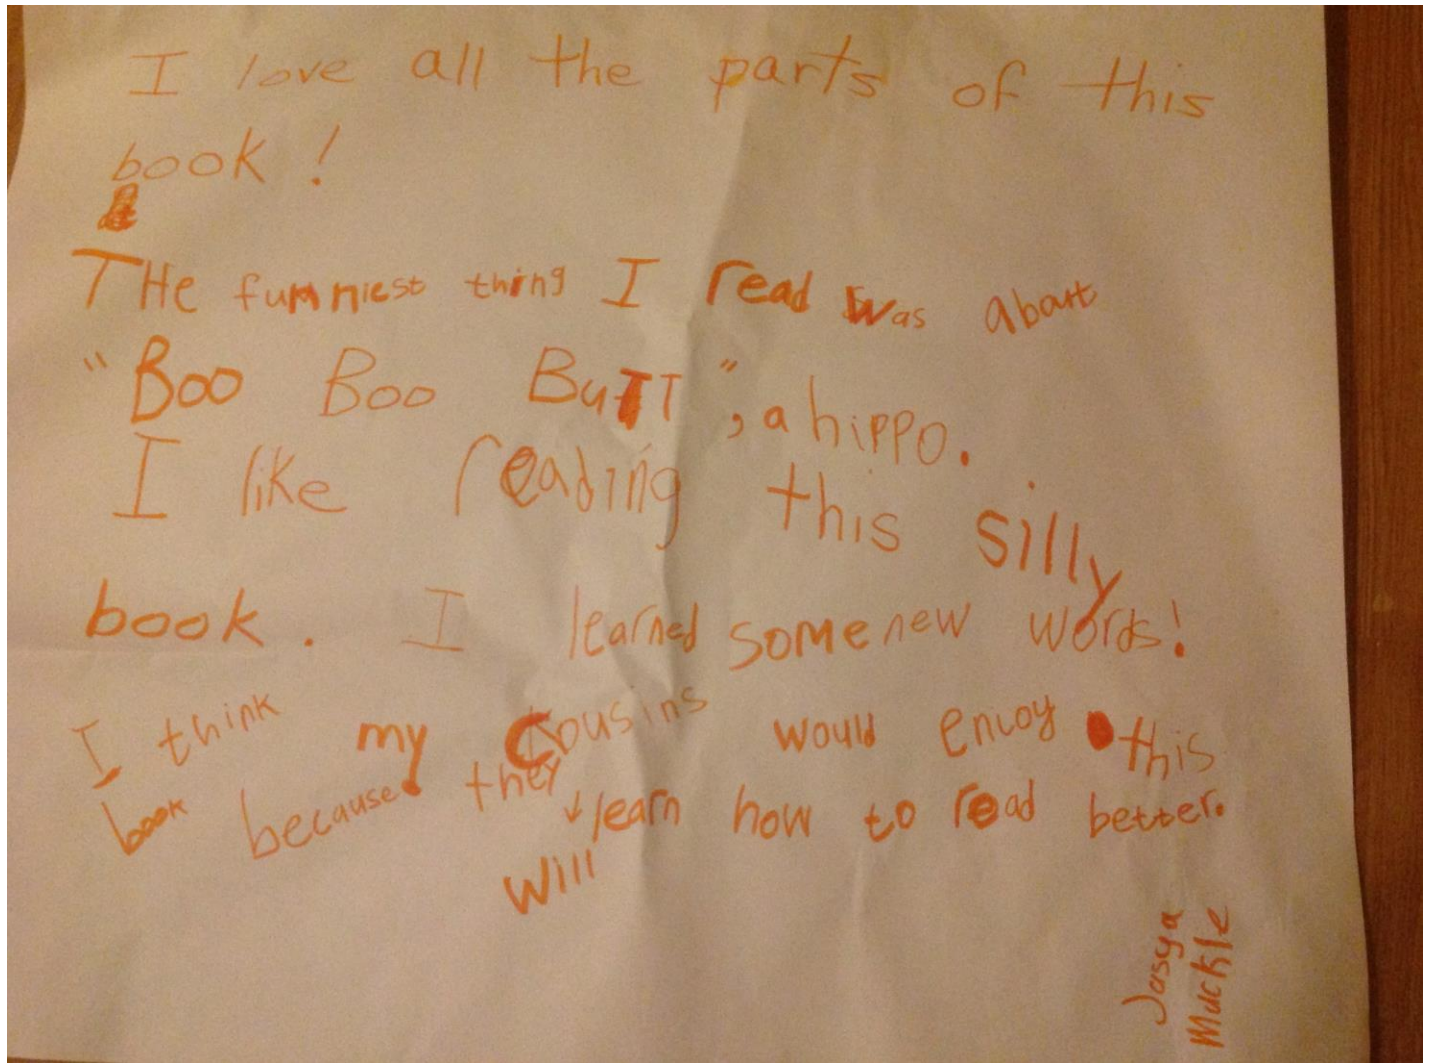 I love all the parts of this
book!
THe funniest thing I read was about
"Boo Boo BuTT", a hippo.
I like reading this silly
book. I learned some new words!
I think my cousins would enjoy this
book because they learn how to read better.
will
Jasya
Muckle